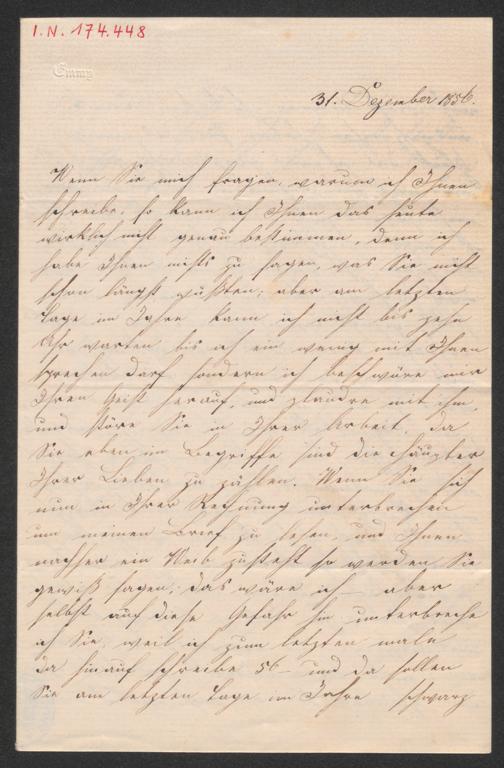 I.N. 174.448
Emmy
31. Dezember 1856.
Wenn Sie mich fragen, warum ich Ihnen
schreibe, so kann ich Ihnen das heute
wirklich nicht genau bestimmen, denn ich
habe Ihnen nichts zu sagen, was Sie nicht
schon längst wüßten; aber am letzten
Tage im Jahre kann ich nicht bis zehn
Uhr warten bis ich ein wenig mit Ihnen
sprechen darf sondern ich beschwöre mir
Ihren Geist herauf, und plaudre mit ihm,
und störe Sie in Ihrer Arbeit, da
Sie eben im Begriffe sind die Häupter
Ihrer Lieben zu zählen. Wenn Sie sich
nun in Ihrer Rechnung unterbrechen
um meinen Brief zu lesen, und Ihnen
nachher ein Weib zusteht so werden Sie
gewiß sagen; das wäre ich – aber
selbst auf diese Gefahr hin unterbreche
ich Sie, weil ich zum letzten male
da hinauf schreibe 56 – und da sollen
Sie am letzten Tage im Jahre schwarz